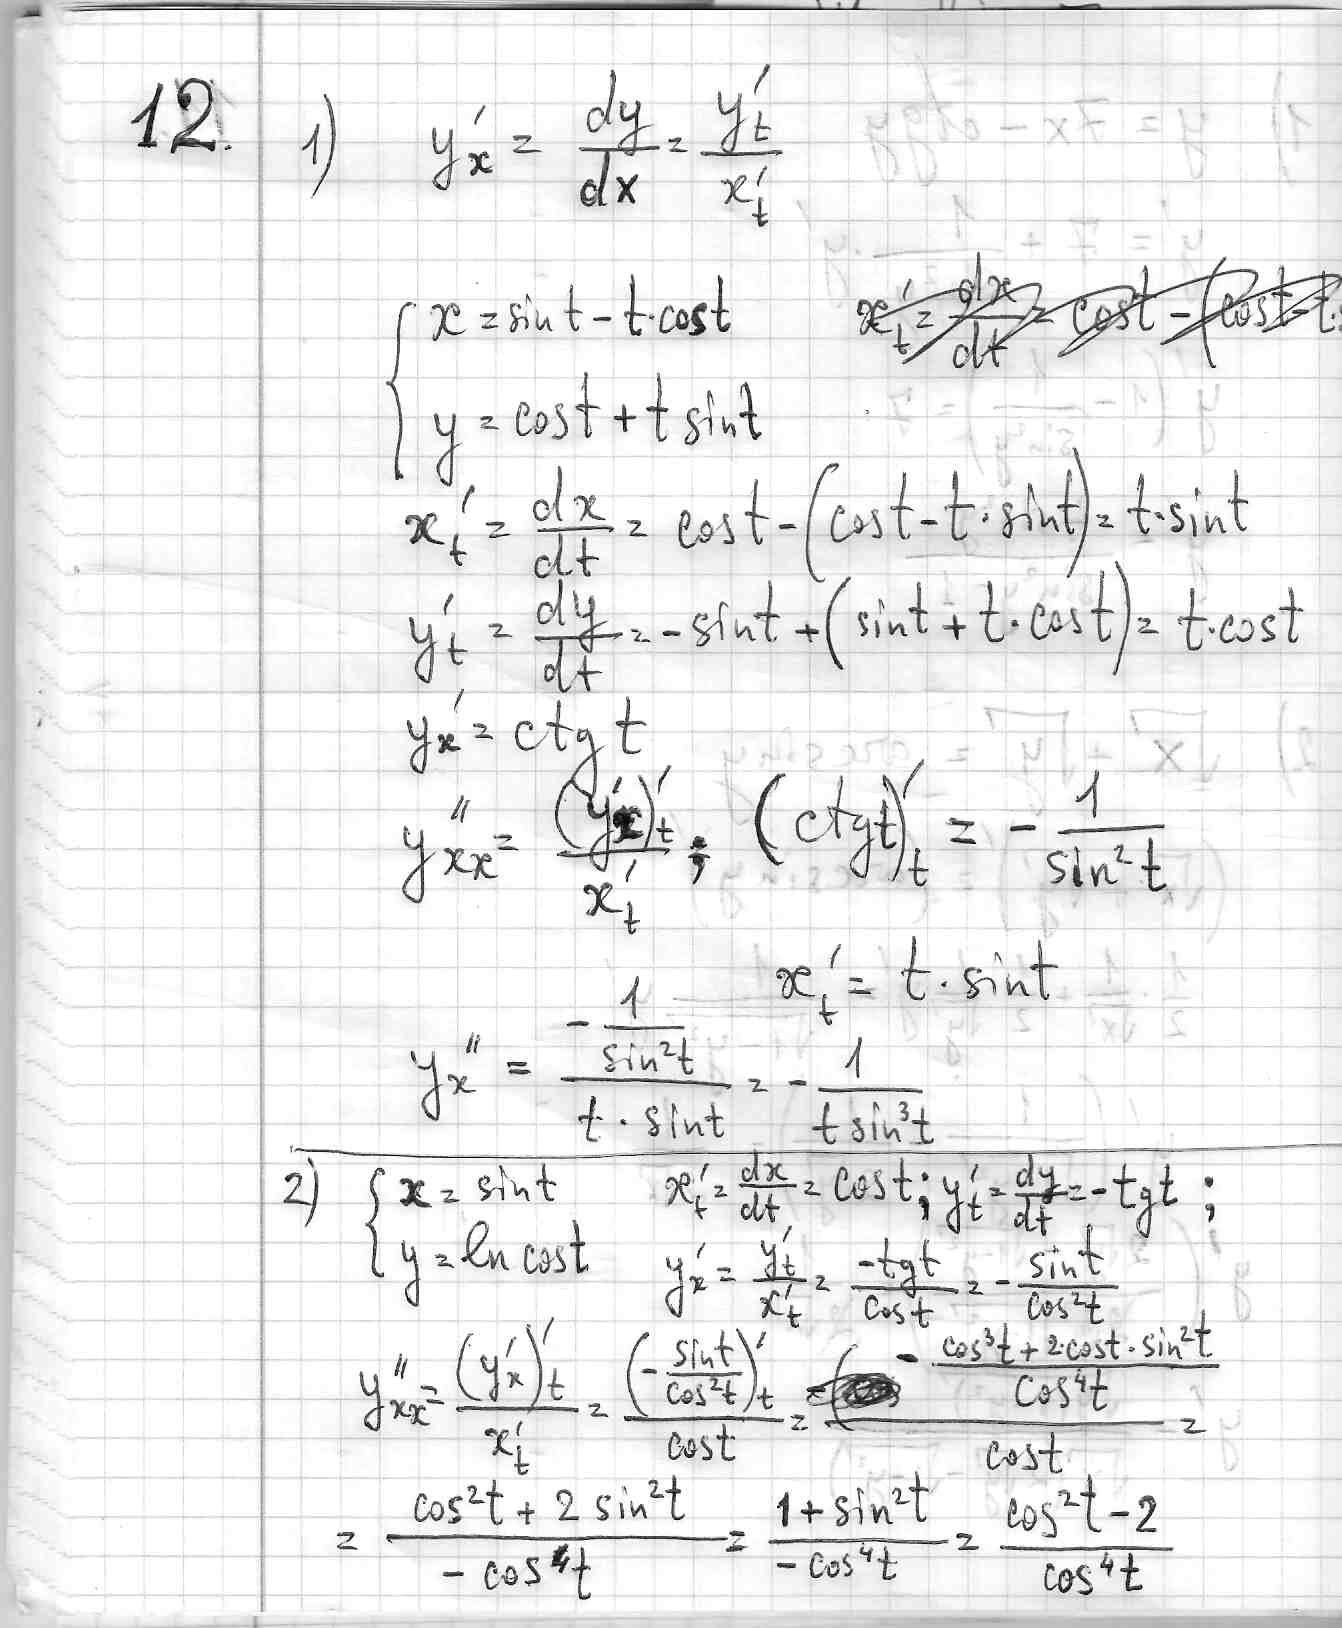 12. 1) y'ₓ = dy/dx = y'ₜ/x'ₜ
{ x = sin t − t·cos t
y = cos t + t sin t
x'ₜ = dx/dt = cos t − (cos t − t·sin t) = t·sin t
y'ₜ = dy/dt = − sin t + (sin t + t·cos t) = t·cos t
y'ₓ = ctg t
y''ₓₓ = (y'ₓ)'ₜ / x'ₜ ; (ctg t)'ₜ = − 1/sin²t
x'ₜ = t·sin t
y''ₓ = (− 1/sin²t) / (t·sin t) = − 1/(t sin³t)
2) { x = sin t x'ₜ = dx/dt = cos t; y'ₜ = dy/dt = − tg t ;
y = ln cos t y'ₓ = y'ₜ/x'ₜ = − tg t/cos t = − sin t/cos²t
y''ₓₓ = (y'ₓ)'ₜ / x'ₜ = (− sin t/cos²t)'ₜ / cos t = (− (cos³t + 2·cos t·sin²t)/cos⁴t) / cos t =
= (cos²t + 2 sin²t)/(− cos⁴t) = (1 + sin²t)/(− cos⁴t) = (cos²t − 2)/cos⁴t